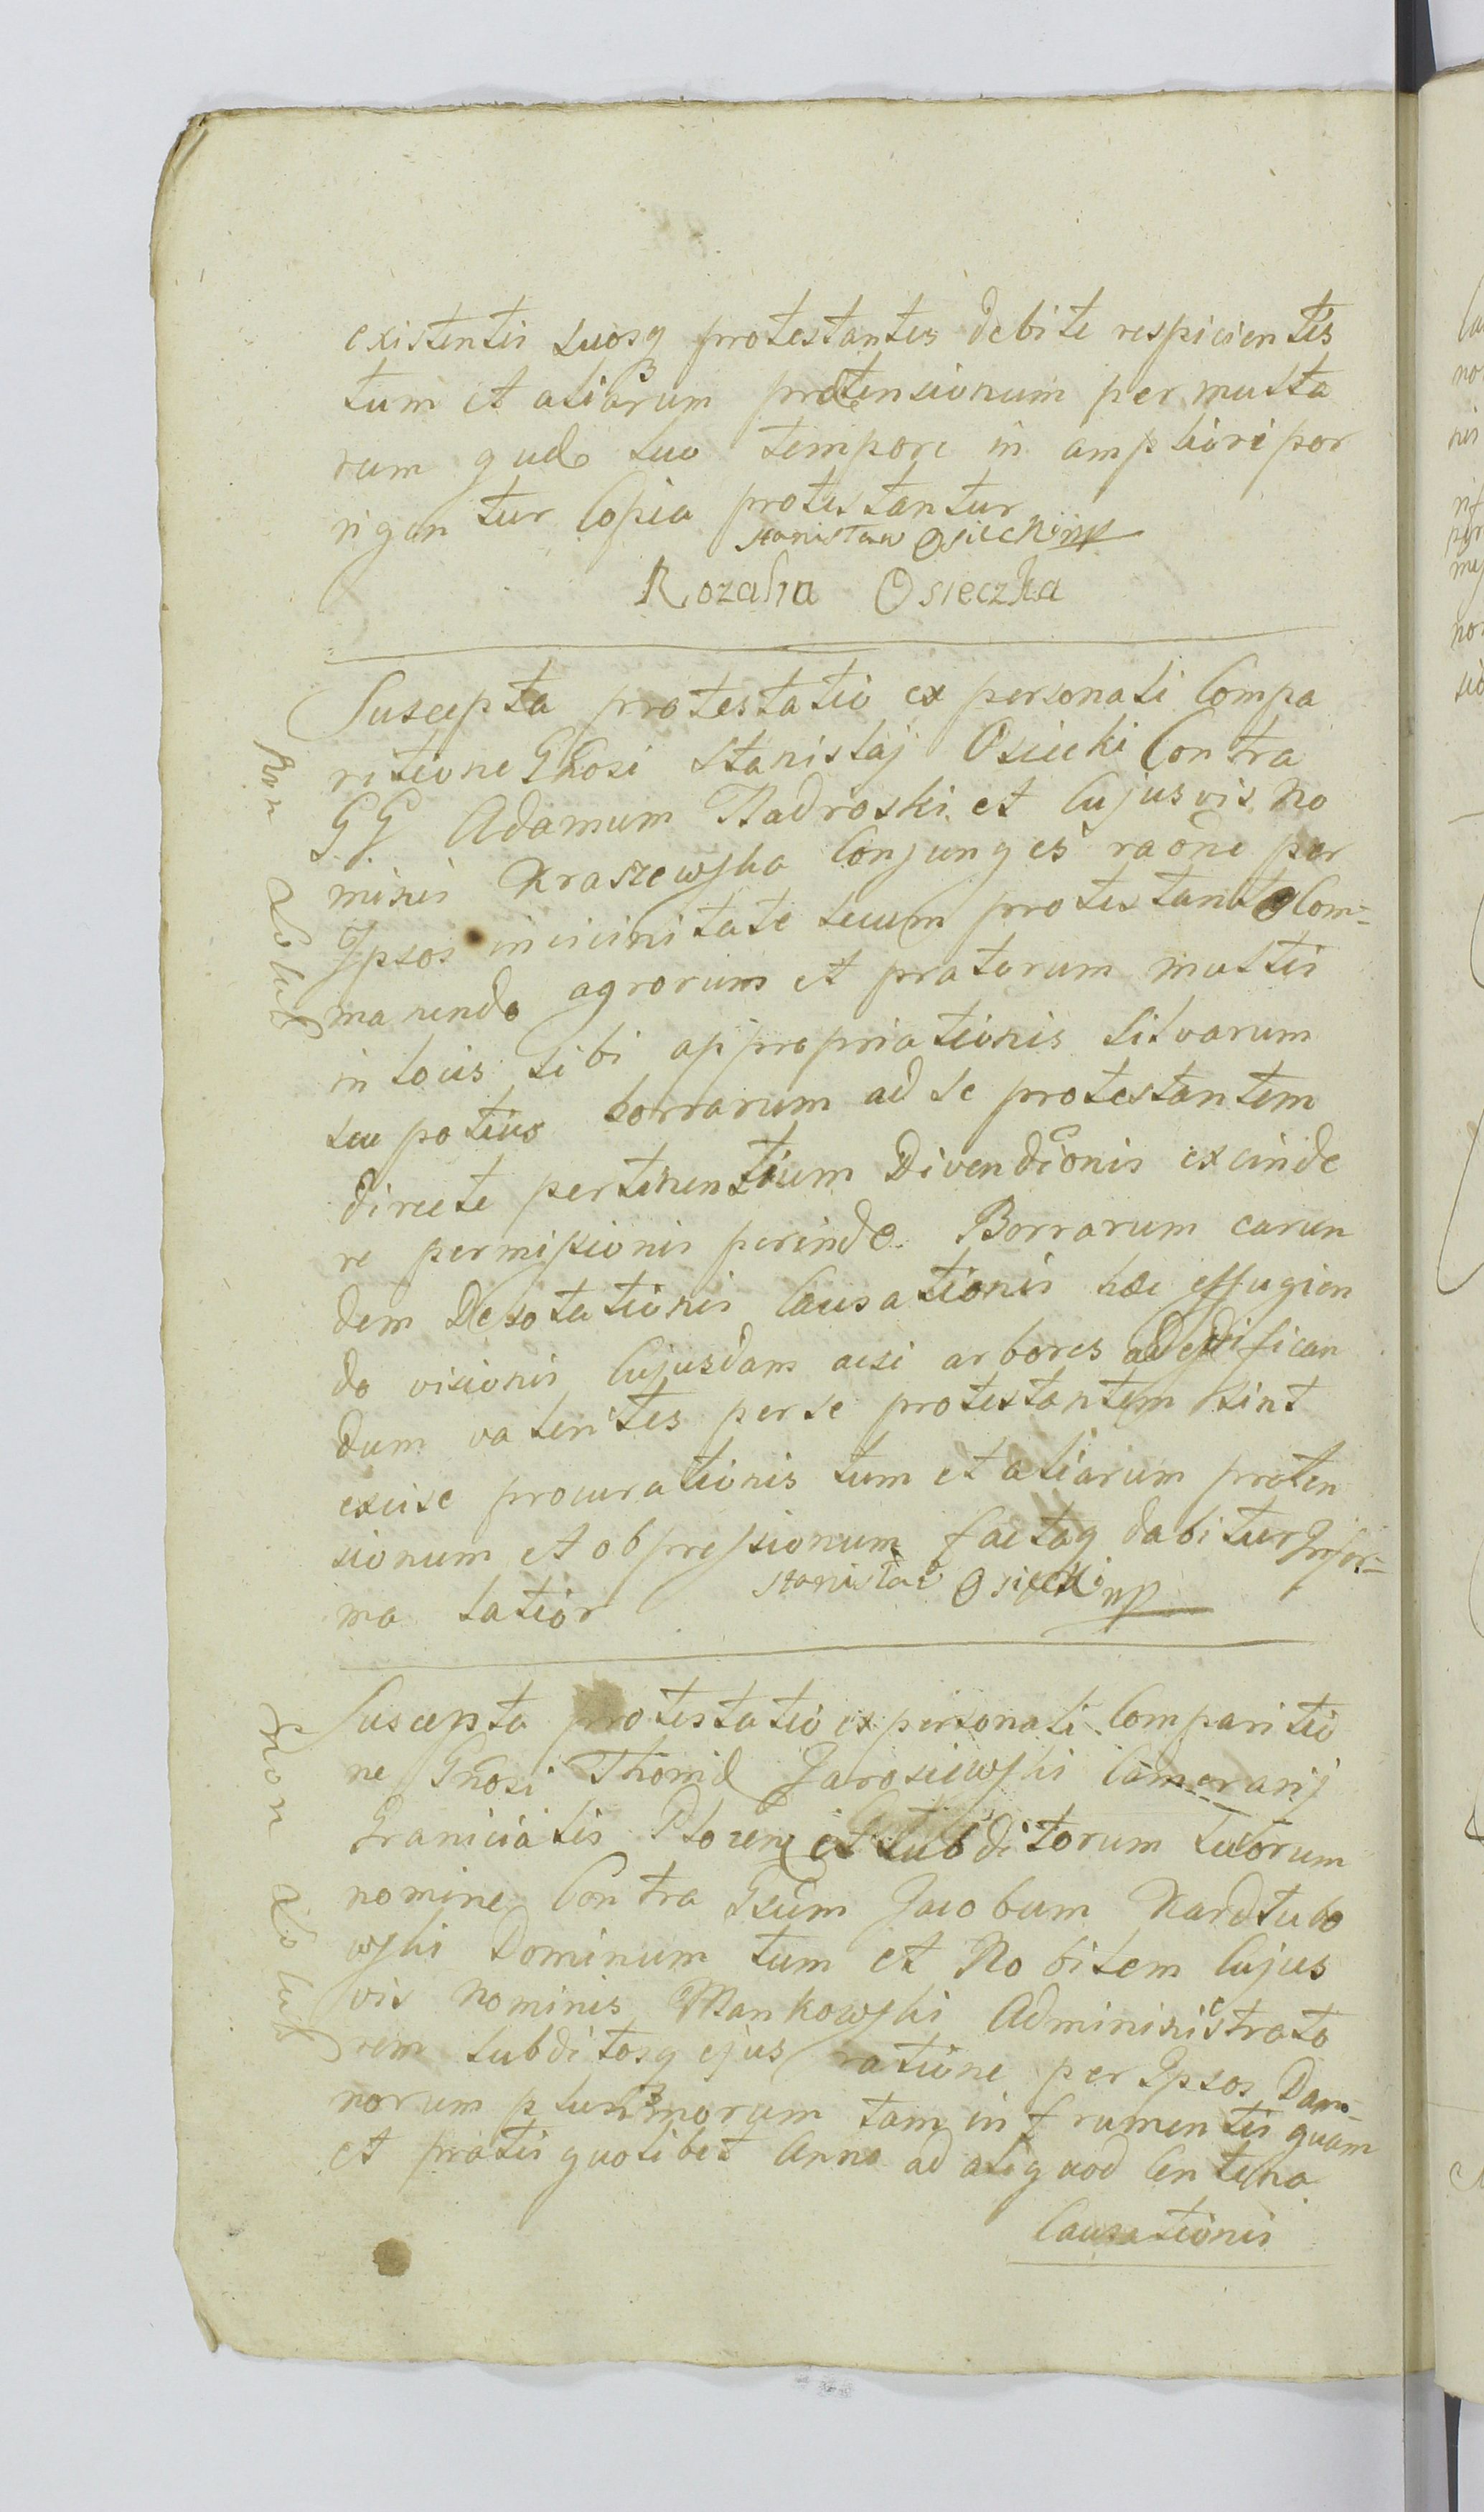 existentis suosq protestantes debite respicientis
tum et aliarum prætensionum per multa
rum quæ suo tempore in ampliori por
rigantur Copia protestantur
Stanisław Osiecki mp
Rozalia Osieczka
Suscepta protestatio ex personali Compa
ritione Gnosi Stanislaj Osiecki Contra
GG Adamum Nadroski et Cujusvis No
minis Kraszewska Conjunges raone per
Ipsos in vicinitate secum protestante Com=
manendo agrorum et pratorum multis
in locis sibi appropriationis silvarum
seu potius borrarum ad se protestantem
directe pertinentium Divenditionis excinde
re permissionis perinde Borrarum earun
dem Desolationis Causationis hæc effugien
do visionis Cujusdam acsi arbores ad ædifican
dum valentes per se protestantem sint
excise procurationis tum et aliarum præten
sionum et obpressionum factaq dabitur Infor=
ma latior
Stanisław Osiecki mp
Non Solut
Suscepta protestatio ex personali Comparitio
ne Gnosi Thomæ Jarosiewski Camerarij
Granicialis Plocen et subditorum suorum
nomine Contra Gsum Jacobum Nardtubo
wski Dominum tum et Nobilem Cujus
vis Nominis Mankowski Administrato
rem subditosq ejus ratione per Ipsos Dam=
norum plurimorum tam in frumentis quam
et pratis quolibet Anno ad aliquod Centena
Causationis
Non Solut